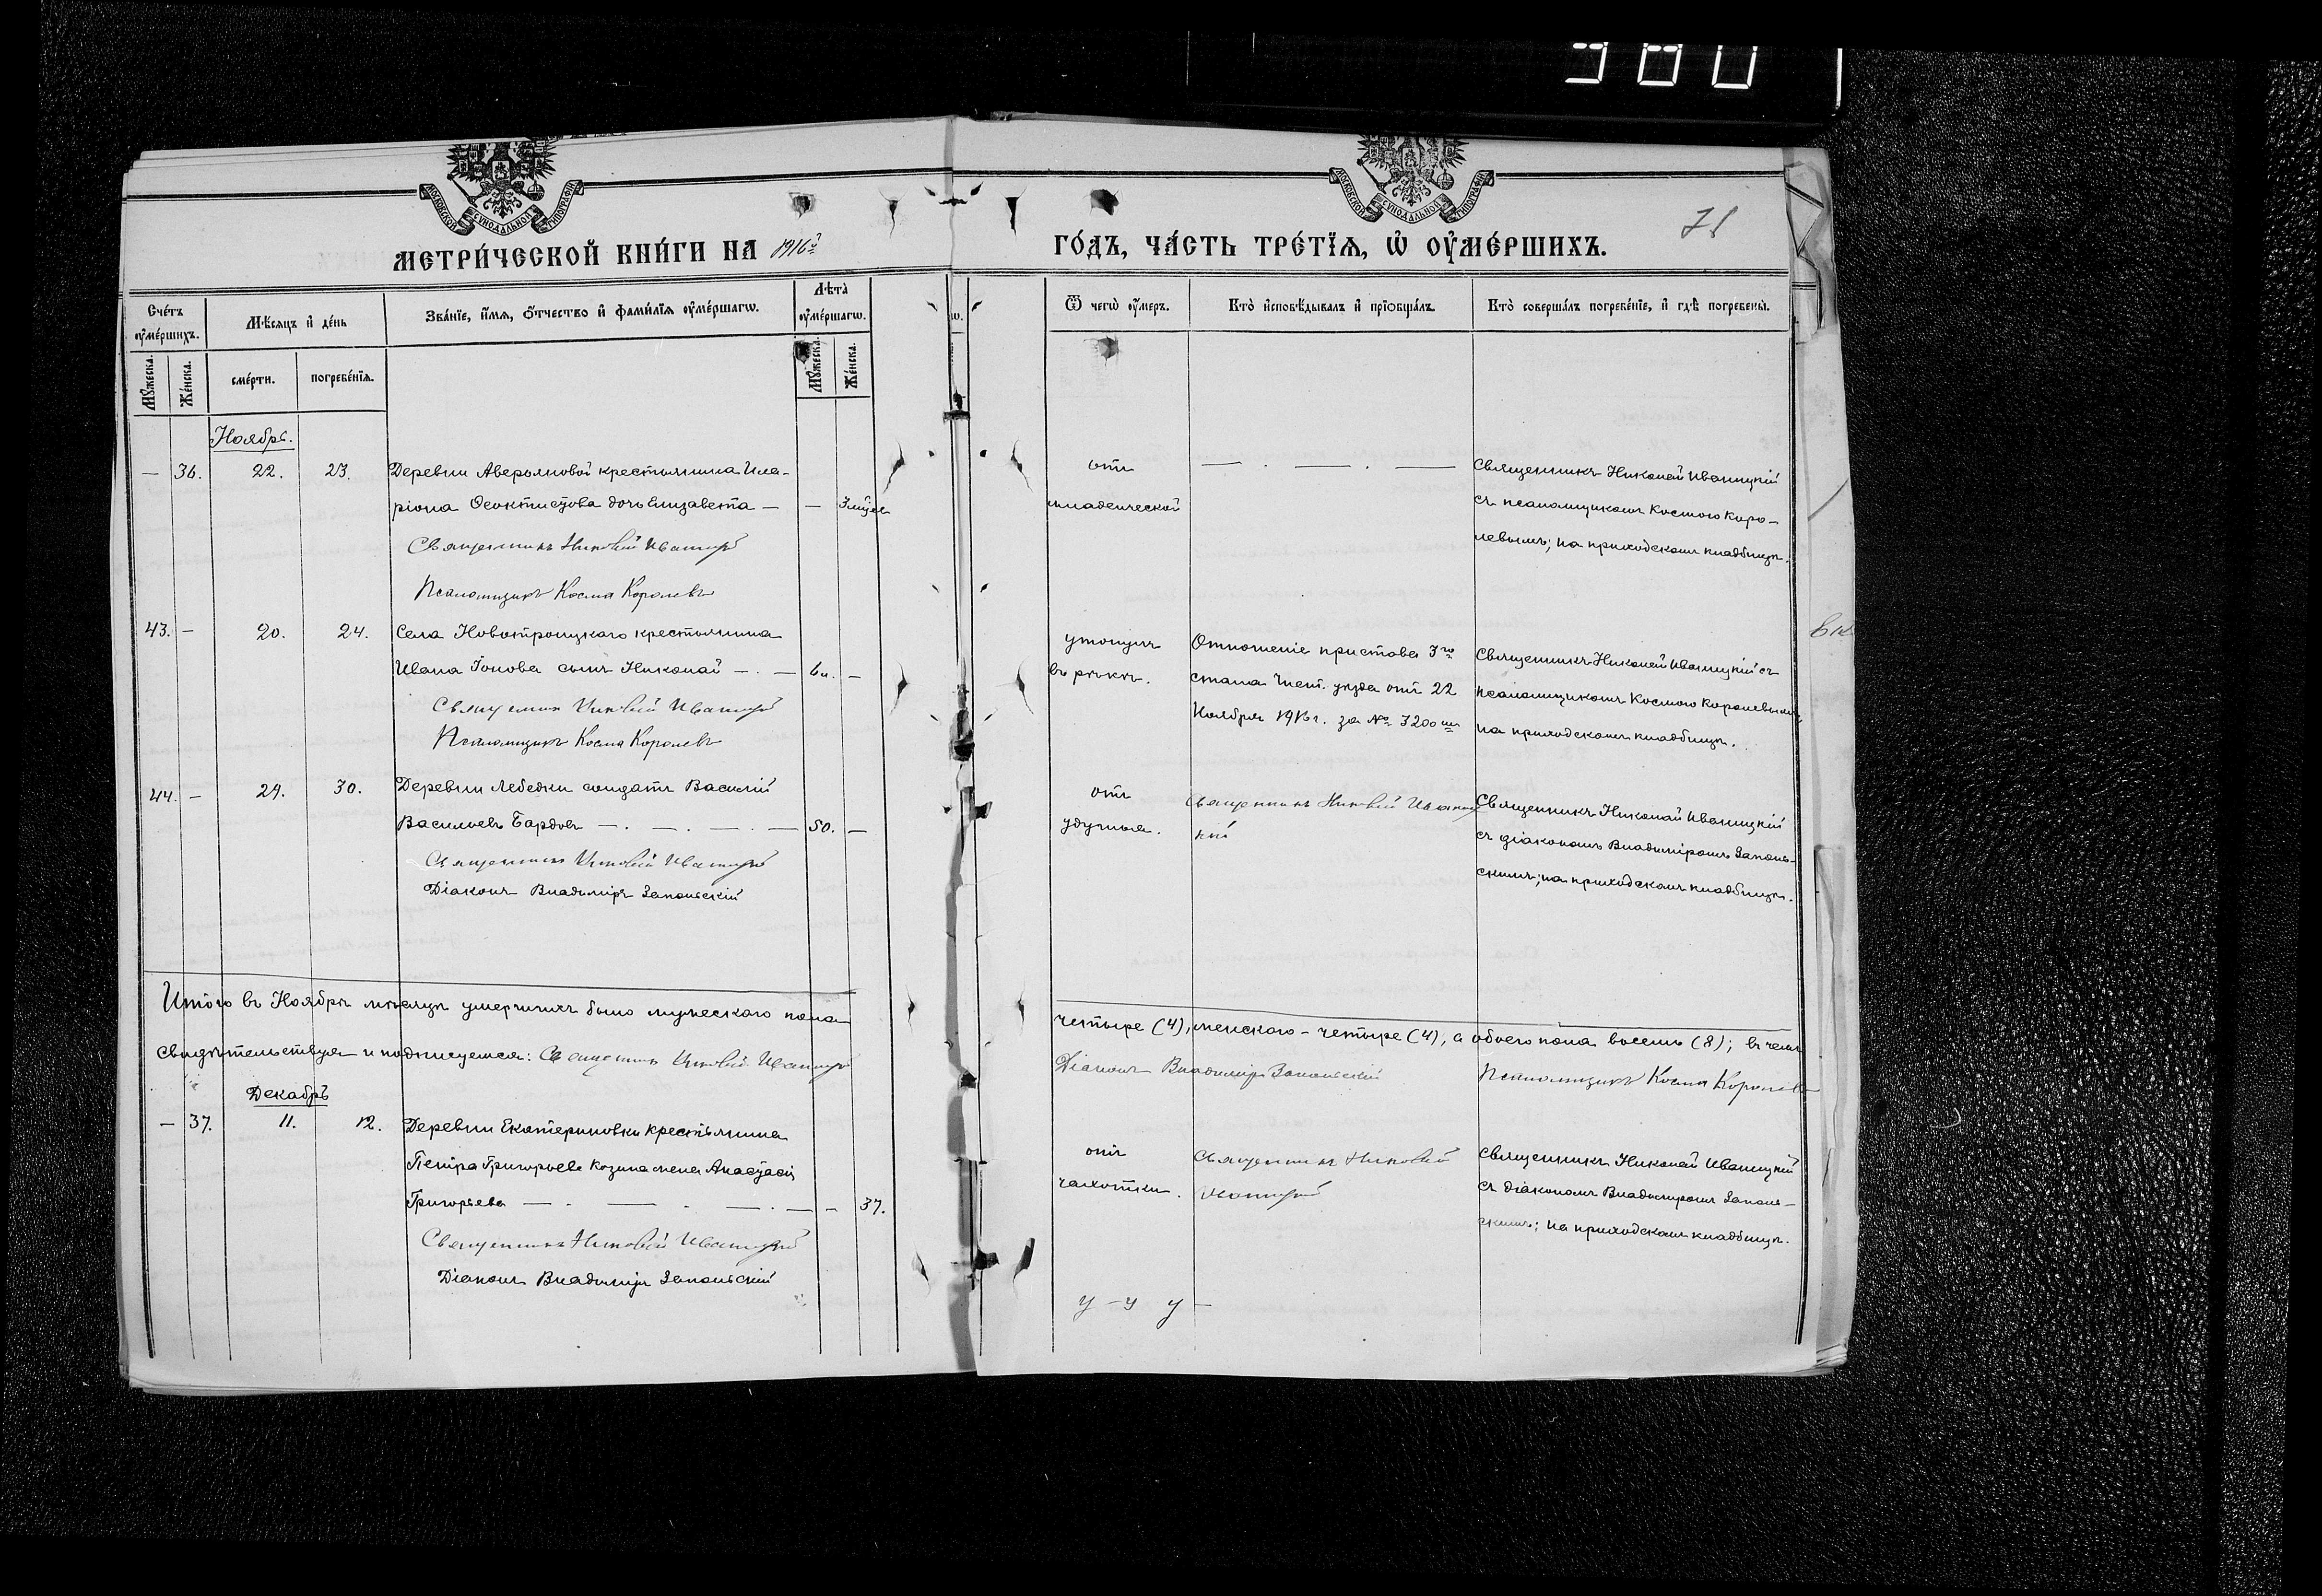 980
МОСКОВСКОЙ СѴНОДАЛЬНОЙ ТИПОГРАФІИ
МОСКОВСКОЙ СѴНОДАЛЬНОЙ ТИПОГРАФІИ
71
МЕТРИ́ЧЕСКОЙ КНИ́ГИ НА 1916й
ГО́ДЪ, ЧА́СТЬ ТРЕ́ТЇѦ, Ѡ҆ ОУ҆МЕ́РШИХЪ.
Сче́тъ оу҆ме́ршихъ.
Мѣ́сяцъ и҆ де́нь
Зва́нїе, и҆́мѧ, ѻ҆́тчество и҆ фами́лїѧ оу҆ме́ршагѡ.
Лѣта̀ оу҆ме́ршагѡ.
Ѿ чегѡ̀ оу҆́меръ.
Кто̀ и҆сповѣ́дывалъ и҆ прїѻбща́лъ.
Кто̀ соверша́лъ погребе́нїе, и҆ гдѣ̀ погребены̀.
Мꙋ́жеска.
Же́нска.
сме́рти.
погребе́нїѧ.
Мꙋ́жеска.
Же́нска.
Ноябрь.
— 36. 22. 23. Деревни крестьянина Ила-
ріона Ѳеоктистова дочь Елизавета — — 3 мѣсяц
Священникъ Николай Иваницкій
Псаломщикъ Косма Королевъ
отъ
младенческой
— . — . —
Священникъ Николай Иваницкій
съ псаломщикомъ Космою Коро-
левымъ; на приходскомъ кладбищѣ.
43. — 20. 24. Села Новотроицкаго крестьянина
Ивана Іонова сынъ Николай — . — 6 —
Священникъ Николай Иваницкій
Псаломщикъ Косма Королевъ
утонулъ
въ рѣкѣ.
Отношеніе пристава 3го
стана уѣзда отъ 22
Ноября 1916 г. за № 3200
Священникъ Николай Иваницкій съ
псаломщикомъ Космою Королевымъ;
на приходскомъ кладбищѣ.
44. — 29. 30. Деревни Лебедки солдатъ Василій
Васильевъ Бардовъ — . — . — . — 50. —
Священникъ Николай Иваницкій
Діаконъ Владиміръ Запольскій
отъ
удушья.
Священникъ Николай Иваниц
кій
Священникъ Николай Иваницкій
съ діакономъ Владиміромъ Заполь-
скимъ; на приходскомъ кладбищѣ.
Итого въ Ноябрѣ мѣсяцѣ умершихъ было мужескаго пола
четыре (4), женскаго - четыре (4), а обоего пола восемь (8); въ чемъ
свидѣтельствуемъ и подписуемся: Священникъ Николай Иваницкій
Діаконъ Владиміръ Запольскій Псаломщикъ Косма Королевъ
Декабрь
— 37. 11. 12. Деревни Екатериновки крестьянина
Петра Григорьева Козина жена Анастасія
Григорьева — . — . — . — — 37.
Священникъ Николай Иваницкій
Діаконъ Владиміръ Запольскій
отъ
чахотки.
Священникъ Николай
Иваницкій
Священникъ Николай Иваницкій
съ діакономъ Владиміромъ Заполь-
скимъ; на приходскомъ кладбищѣ.